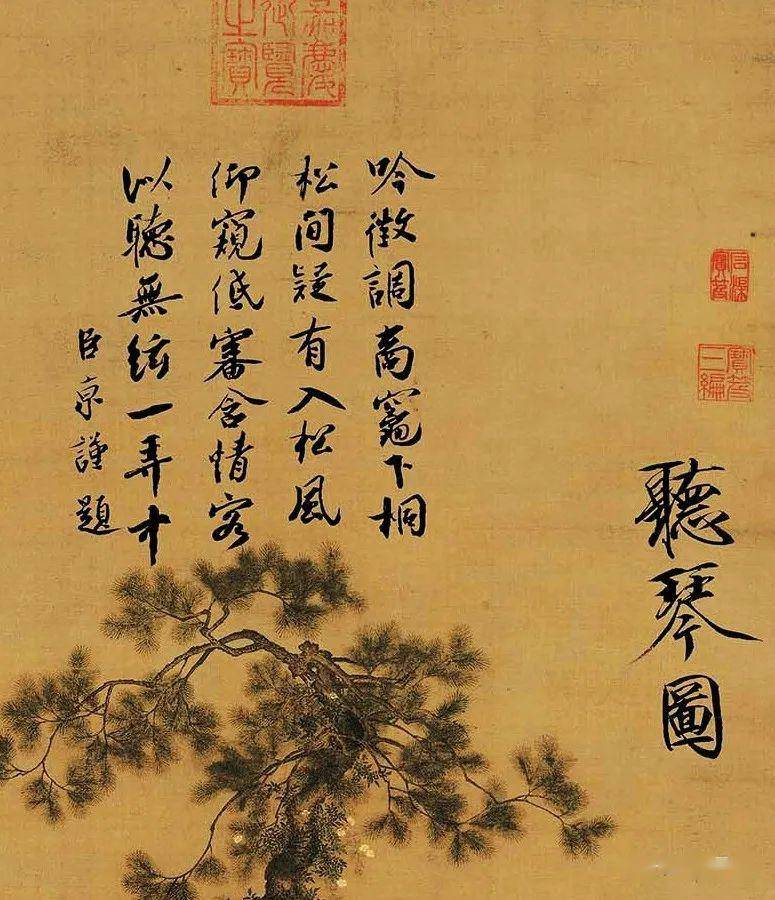 聽琴圖
石渠寶笈
寶笈三編
嘉慶御覽之寶
吟徵調商竈下桐
松間疑有入松風
仰窺低審含情客
以聽無絃一弄中
臣京謹題